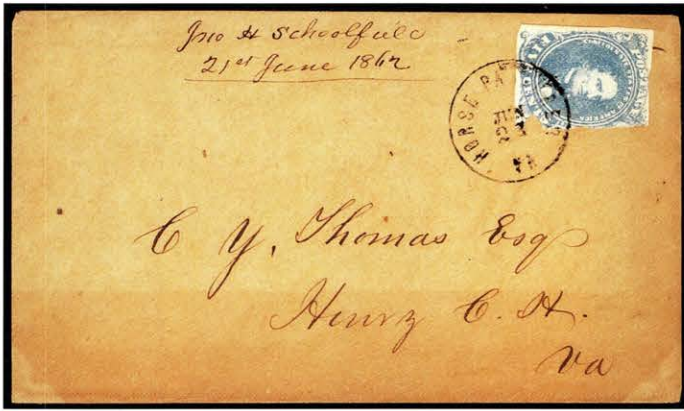 Jno H Schoolfield
21st June 1862
HORSE PAS
VA
C Y. Thomas Esq
Henry C. H.
Va